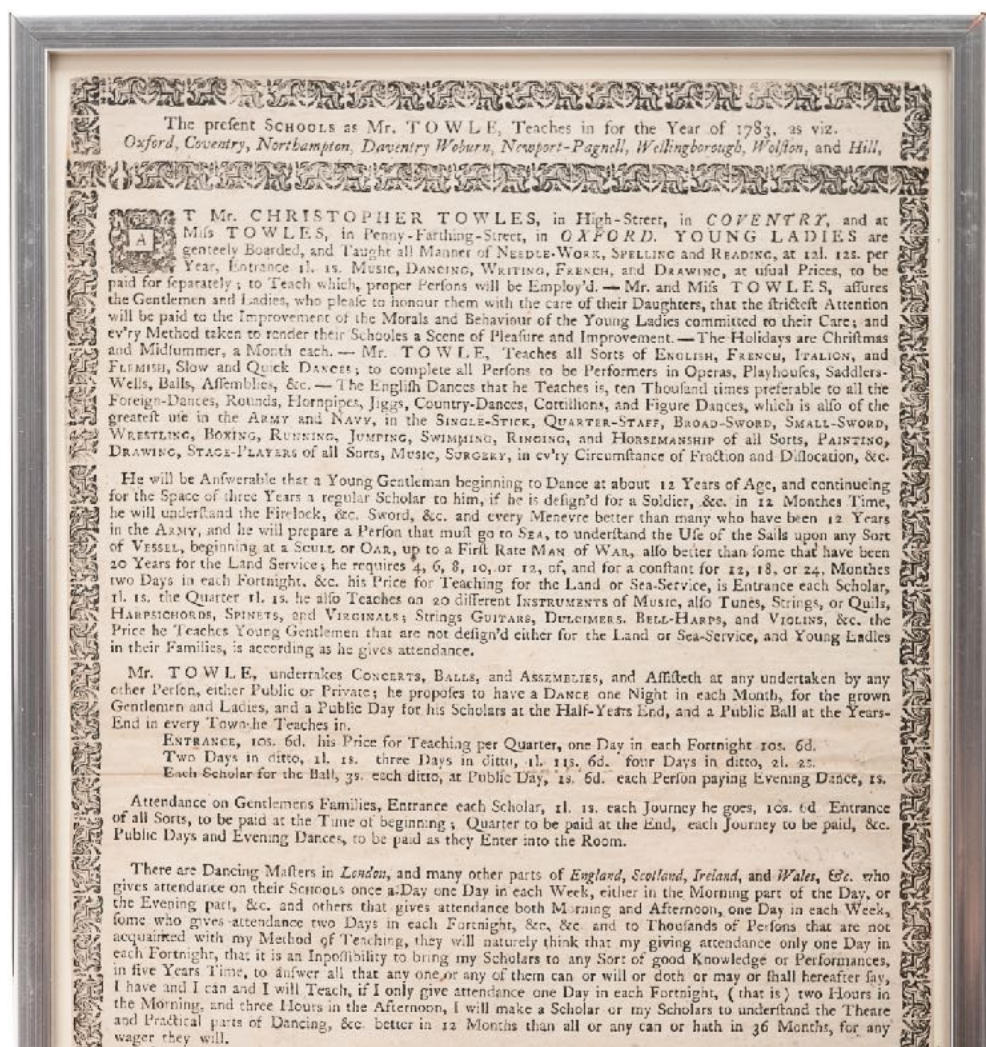 The preſent SCHOOLS as Mr. TOWLE, Teaches in for the Year of 1783, as viz.
Oxford, Coventry, Northampton, Daventry Woburn, Newport-Pagnell, Wellingborough, Wolſton, and Hill,
AT Mr. CHRISTOPHER TOWLES, in High-Street, in COVENTRY, and at
Miſs TOWLES, in Penny-Farthing-Street, in OXFORD. YOUNG LADIES are
genteely Boarded, and Taught all Manner of NEEDLE-WORK, SPELLING and READING, at 12l. 12s. per
Year, Entrance 1l. 1s. MUSIC, DANCING, WRITING, FRENCH, and DRAWING, at uſual Prices, to be
paid for ſeparately; to Teach which, proper Perſons will be Employ'd. — Mr. and Miſs TOWLES, aſſures
the Gentlemen and Ladies, who pleaſe to honour them with the care of their Daughters, that the ſtricteſt Attention
will be paid to the Improvement of the Morals and Behaviour of the Young Ladies committed to their Care; and
ev'ry Method taken to render their Schooles a Scene of Pleaſure and Improvement. — The Holidays are Chriſtmas
and Midſummer, a Month each. — Mr. TOWLE, Teaches all Sorts of ENGLISH, FRENCH, ITALION, and
FLEMISH, Slow and Quick DANCES; to complete all Perſons to be Performers in Operas, Playhouſes, Saddlers-
Wells, Balls, Aſſemblies, &c. — The Engliſh Dances that he Teaches is, ten Thouſand times preferable to all the
Foreign-Dances, Rounds, Hornpipes, Jiggs, Country-Dances, Cottillions, and Figure Dances, which is alſo of the
greateſt uſe in the ARMY and NAVY, in the SINGLE-STICK, QUARTER-STAFF, BROAD-SWORD, SMALL-SWORD,
WRESTLING, BOXING, RUNNING, JUMPING, SWIMMING, RINGING, and HORSEMANSHIP of all Sorts, PAINTING,
DRAWING, STAGE-PLAYERS of all Sorts, MUSIC, SURGERY, in ev'ry Circumſtance of Fraction and Diſlocation, &c.
He will be Anſwerable that a Young Gentleman beginning to Dance at about 12 Years of Age, and continueing
for the Space of three Years a regular Scholar to him, if he is deſign'd for a Soldier, &c. in 12 Monthes Time,
he will underſtand the Firelock, &c. Sword, &c. and every Menevre better than many who have been 12 Years
in the ARMY, and he will prepare a Perſon that muſt go to SEA, to underſtand the Uſe of the Sails upon any Sort
of VESSEL, beginning at a SCULL or OAR, up to a Firſt Rate MAN of WAR, alſo better than ſome that have been
20 Years for the Land Service; he requires 4, 6, 8, 10, or 12, of, and for a conſtant for 12, 18, or 24, Monthes
two Days in each Fortnight, &c. his Price for Teaching for the Land or Sea-Service, is Entrance each Scholar,
1l. 1s. the Quarter 1l. 1s. he alſo Teaches on 20 different INSTRUMENTS of Muſic, alſo Tunes, Strings, or Quils,
HARPSICHORDS, SPINETS, and VIRGINALS; Strings GUITARS, DULCIMERS, BELL-HARPS, and VIOLINS, &c. the
Price he Teaches Young Gentlemen that are not deſign'd either for the Land or Sea-Service, and Young Ladies
in their Families, is according as he gives attendance.
Mr. TOWLE, undertakes CONCERTS, BALLS, and ASSEMBLIES, and Aſſiſteth at any undertaken by any
other Perſon, either Public or Private; he propoſes to have a DANCE one Night in each Month, for the grown
Gentlemen and Ladies, and a Public Day for his Scholars at the Half-Years End, and a Public Ball at the Years-
End in every Town he Teaches in.
ENTRANCE, 10s. 6d. his Price for Teaching per Quarter, one Day in each Fortnight 10s. 6d.
Two Days in ditto, 1l. 1s. three Days in ditto, 1l. 11s. 6d. four Days in ditto, 2l. 2s.
Each Scholar for the Ball, 3s. each ditto, at Public Day, 1s. 6d. each Perſon paying Evening Dance, 1s.
Attendance on Gentlemens Families, Entrance each Scholar, 1l. 1s. each Journey he goes, 10s. 6d Entrance
of all Sorts, to be paid at the Time of beginning; Quarter to be paid at the End, each Journey to be paid, &c.
Public Days and Evening Dances, to be paid as they Enter into the Room.
There are Dancing Maſters in London, and many other parts of England, Scotland, Ireland, and Wales, &c. who
gives attendance on their SCHOOLS once a Day one Day in each Week, either in the Morning part of the Day, or
the Evening part, &c. and others that gives attendance both Morning and Afternoon, one Day in each Week,
ſome who gives attendance two Days in each Fortnight, &c, &c. and to Thouſands of Perſons that are not
acquainted with my Method of Teaching, they will naturely think that my giving attendance only one Day in
each Fortnight, that it is an Inpoſſibility to bring my Scholars to any Sort of good Knowledge or Performances,
in five Years Time, to anſwer all that any one or any of them can or will or doth or may or ſhall hereafter ſay,
I have and I can and I will Teach, if I only give attendance one Day in each Fortnight, (that is) two Hours in
the Morning, and three Hours in the Afternoon, I will make a Scholar or my Scholars to underſtand the Theare
and Practical parts of Dancing, &c. better in 12 Months than all or any can or hath in 36 Months, for any
wager they will.